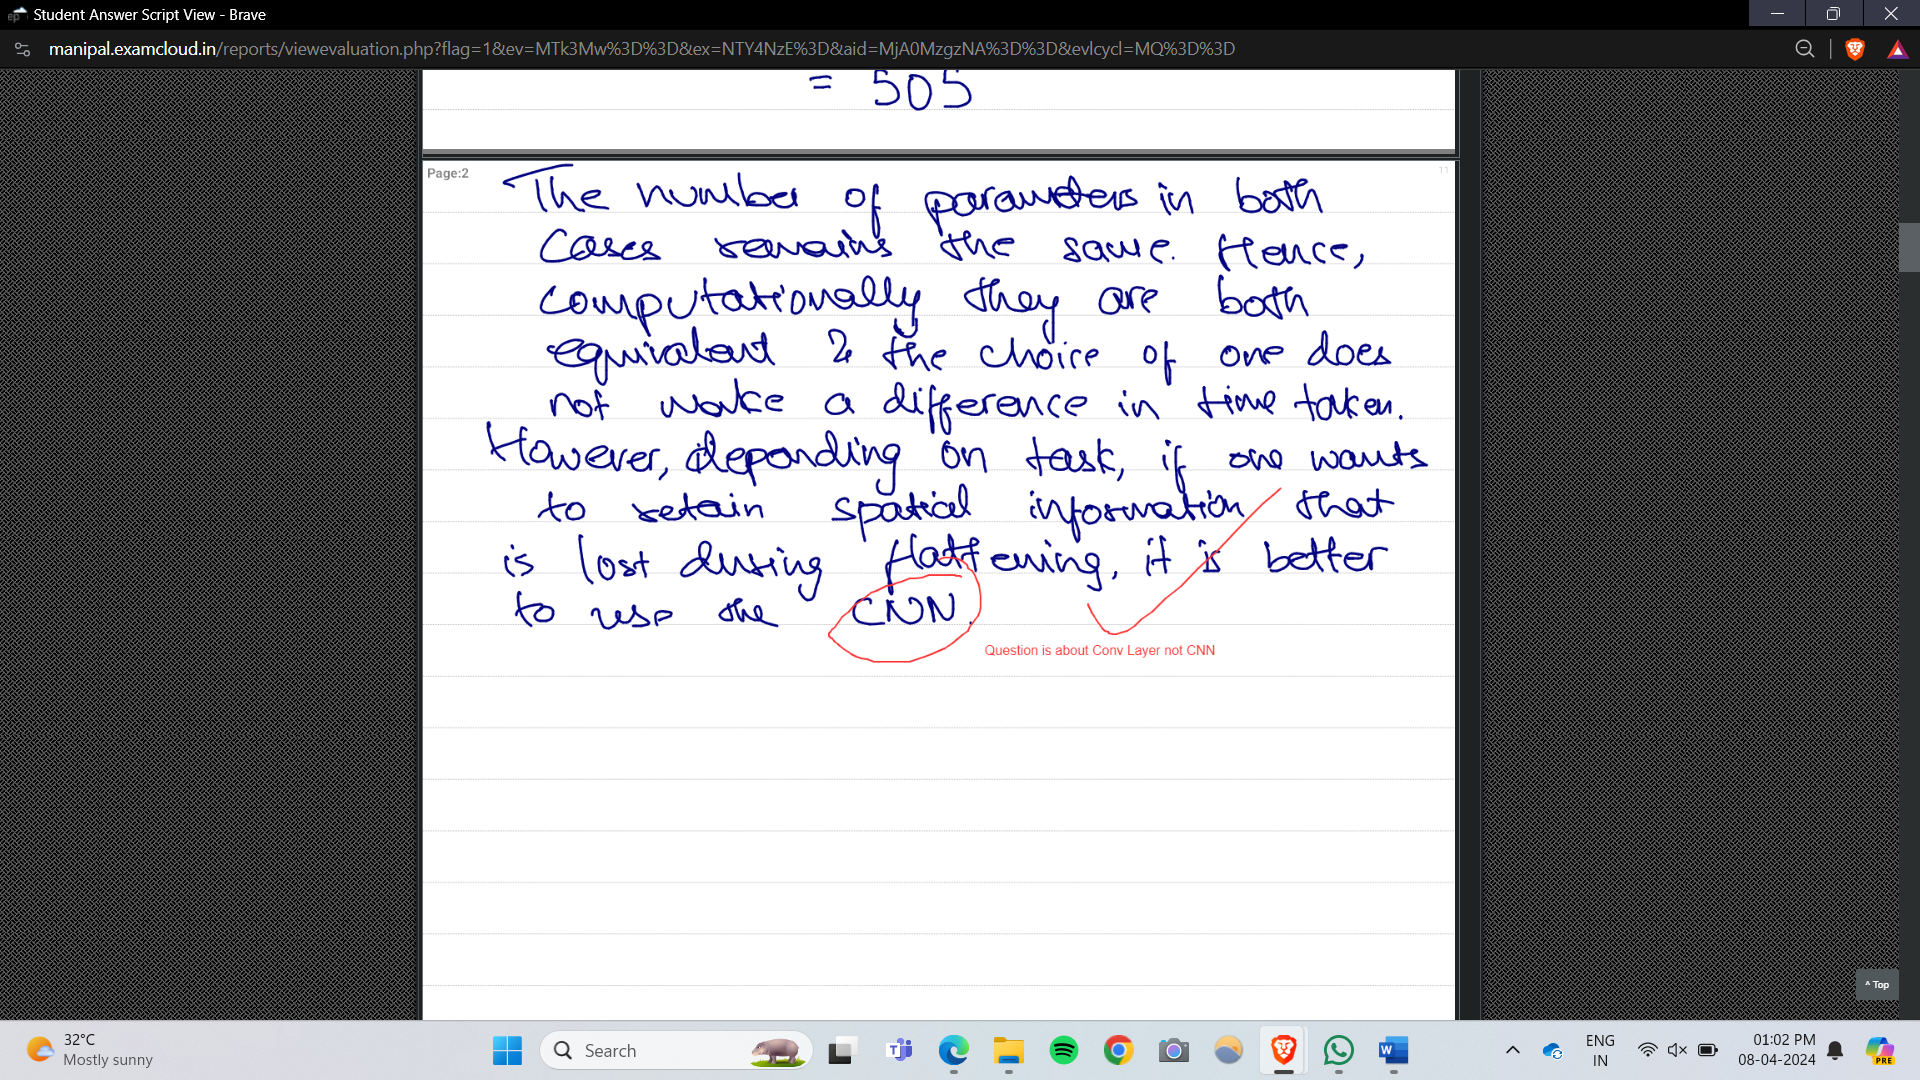 Student Answer Script View - Brave
manipal.examcloud.in/reports/viewevaluation.php?flag=1&ev=MTk3Mw%3D%3D&ex=NTY4NzE%3D&aid=MjA0MzgzNA%3D%3D&evlcycl=MQ%3D%3D
= 505
Page:2
11
The number of parameters in both
Cases remains the same. Hence,
computationally they are both
equivalent & the choice of one does
not make a difference in time taken.
However, depending on task, if one wants
to retain spatial information that
is lost during flattening, it is better
to use the CNN.
Question is about Conv Layer not CNN
^ Top
32°C
Mostly sunny
Search
ENG
IN
01:02 PM
08-04-2024
PRE